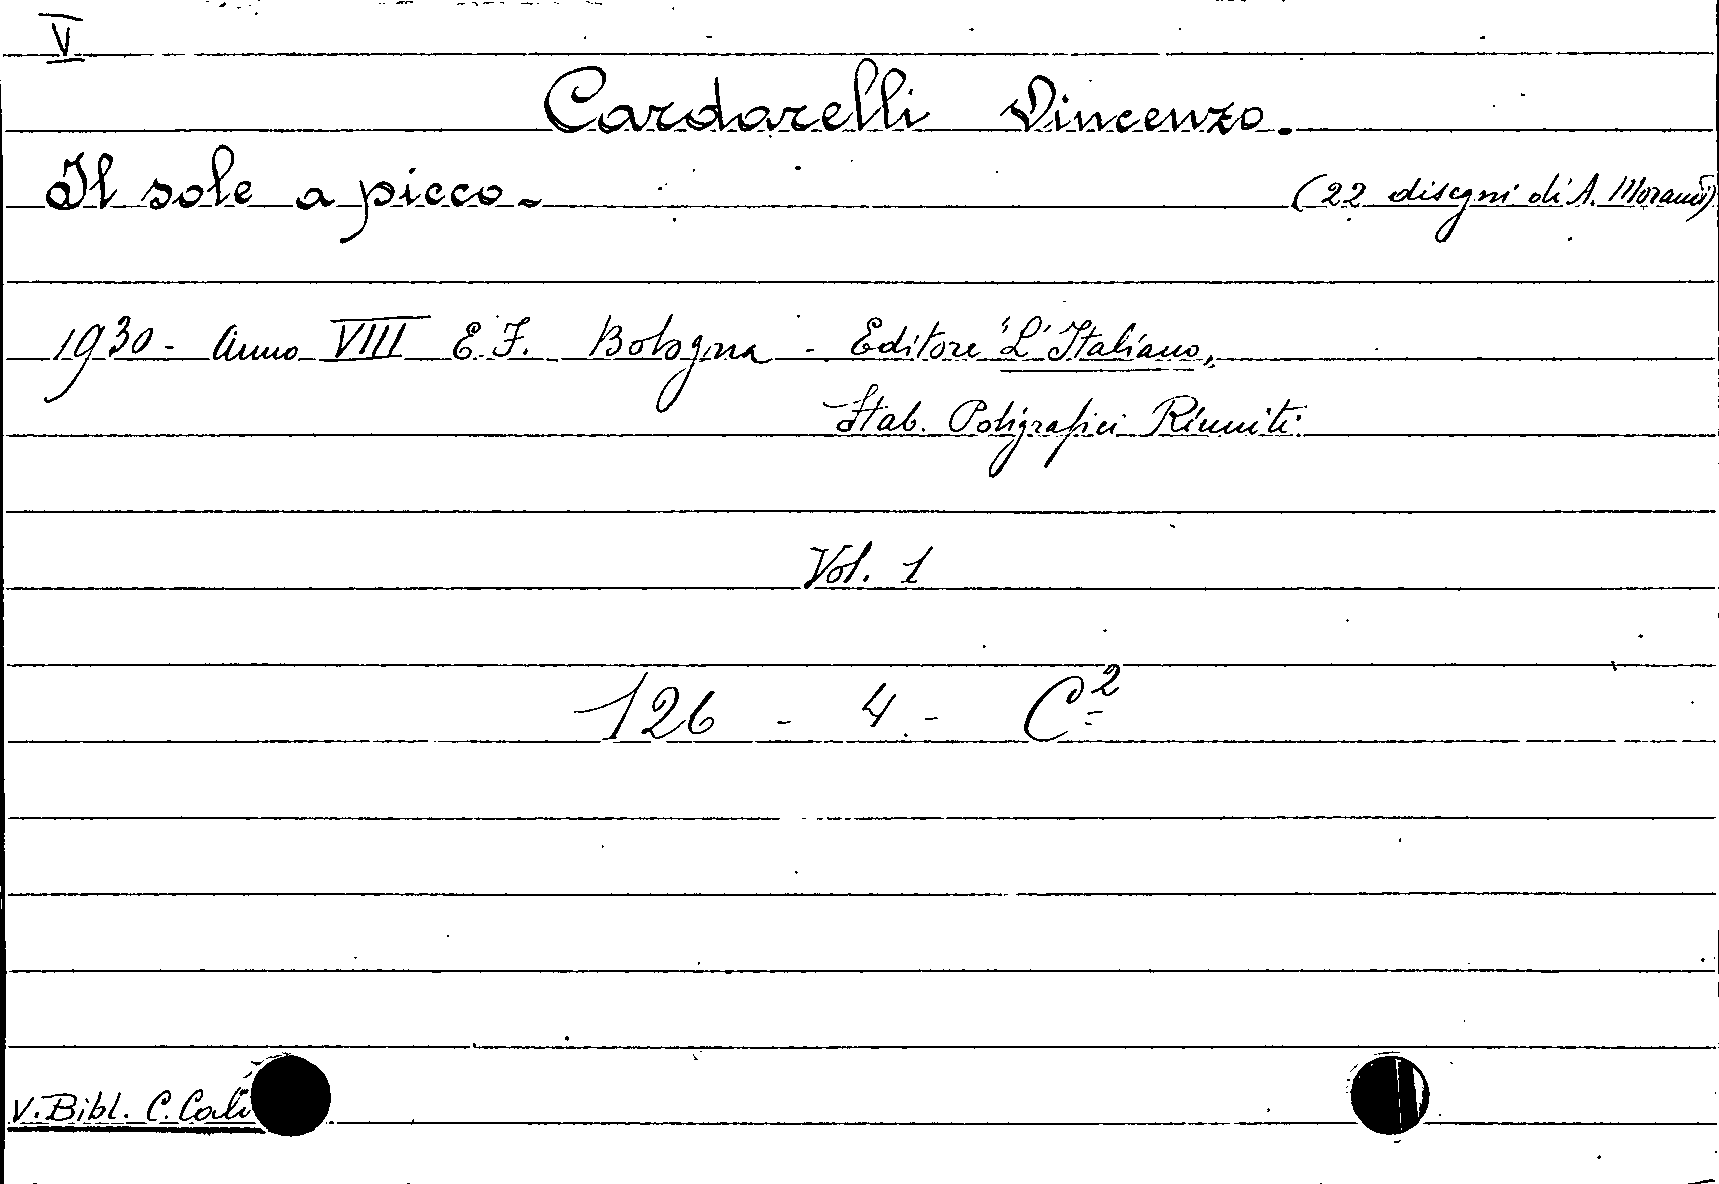 V
Cardarelli Vincenzo.
Il sole a picco. (22 disegni di A. Morandi)
1930 - Anno VIII E.F. Bologna - Editore "L'Italiano„
Stab. Poligrafici Riuniti
Vol. 1
126 - 4 - C²
V. Bibl. C. Calì